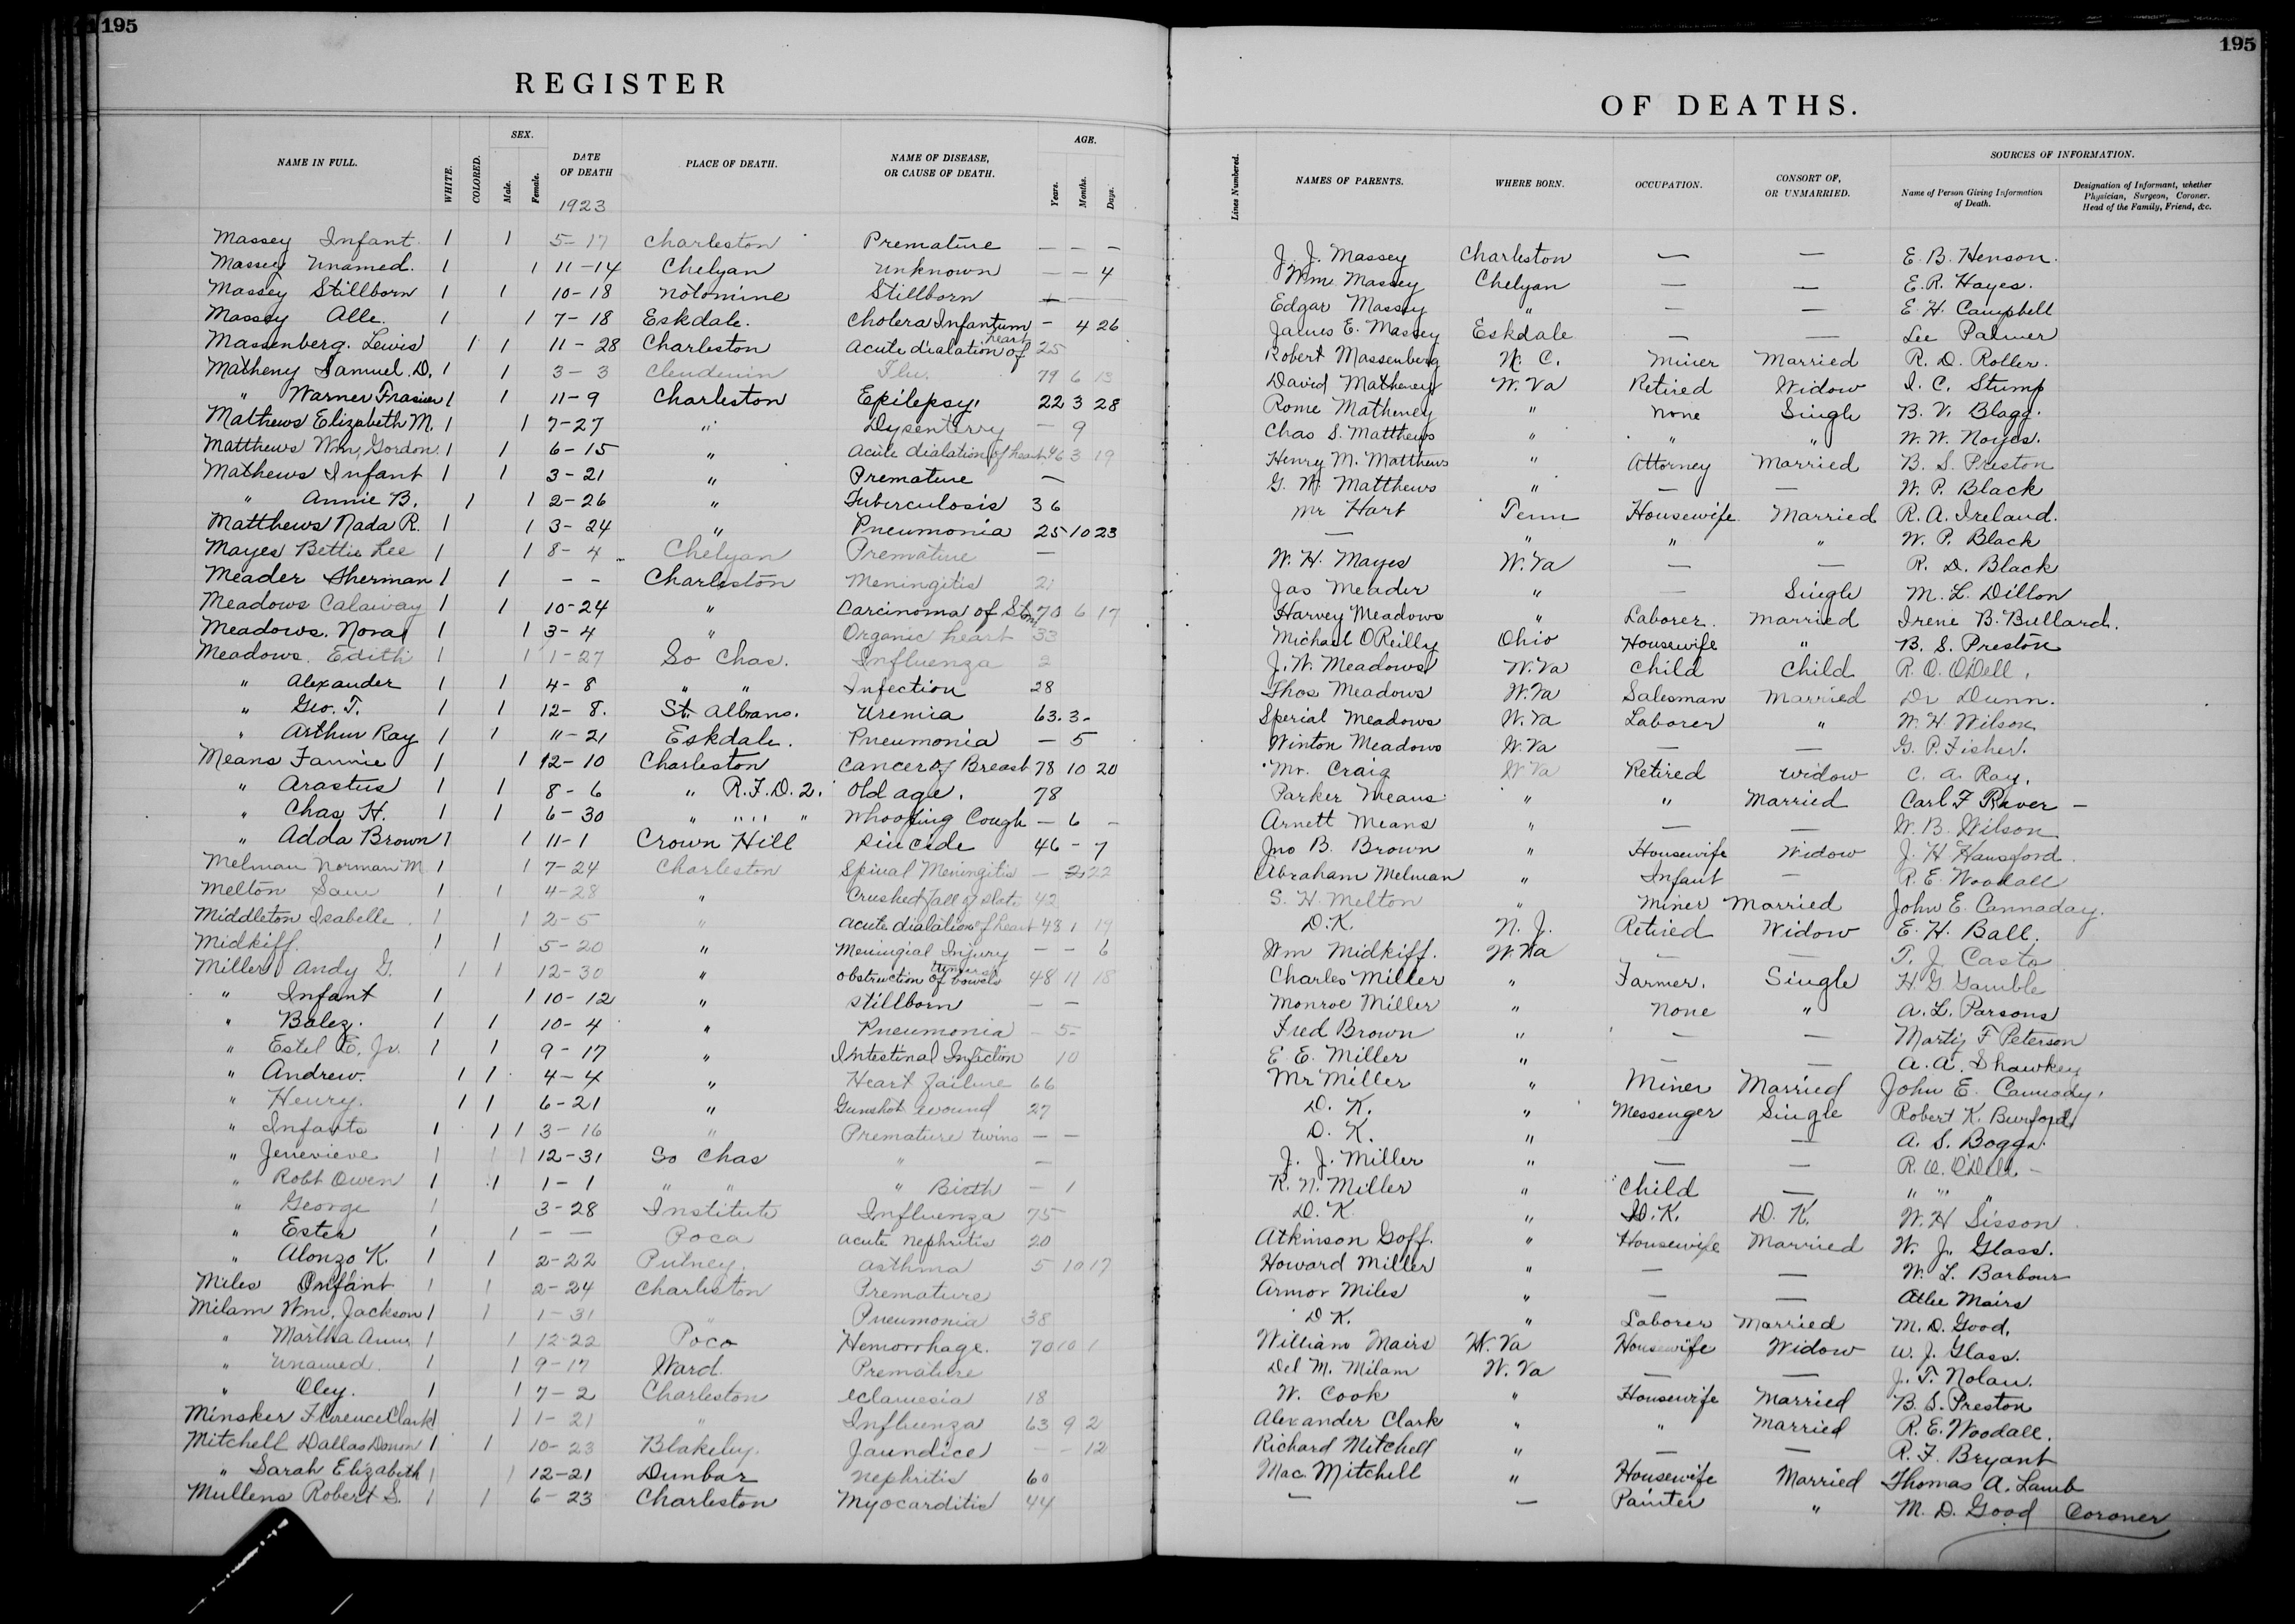 195
195
REGISTER
OF DEATHS.
NAME IN FULL.
WHITE.
COLORED.
SEX.
Male.
Female.
DATE OF DEATH
1923
PLACE OF DEATH.
NAME OF DISEASE, OR CAUSE OF DEATH.
AGE.
Years.
Months.
Days.
Lines Numbered.
NAMES OF PARENTS.
WHERE BORN.
OCCUPATION.
CONSORT OF, OR UNMARRIED.
SOURCES OF INFORMATION.
Name of Person Giving Information of Death.
Designation of Informant, whether Physician, Surgeon, Coroner. Head of the Family, Friend, &c.
Massey Infant 1 1 5-17 Charleston Premature — — — J. J. Massey Charleston — — E. B. Henson.
Massey Unamed. 1 1 11-14 Chelyan Unknown — — 4 Wm Massey Chelyan — — E. R. Hayes.
Massey Stillborn 1 1 10-18 Notomine Stillborn — — — Edgar Massey " — — E. H. Campbell
Massey Alle. 1 1 7-18 Eskdale. Cholera Infantum - 4 26 James E. Massey Eskdale — — Lee Palmer
Massenberg. Lewis 1 1 11-28 Charleston Acute dialation of heart 25 Robert Massenberg N. C. Miner Married R. D. Roller.
Matheny Samuel. D. 1 1 3-3 Clendenin Flu. 79 6 13 David Matheney W. Va Retired Widow I. C. Stump
" Warner Frasier 1 1 11-9 Charleston Epilepsy 22 3 28 Rome Matheney " None Single B. V. Blagg.
Mathews Elizabeth M. 1 1 7-27 " Dysenterry — 9 Chas S. Matthews " " " W. W. Noyes.
Matthews Wm, Gordon. 1 1 6-15 " Acute dialation of heart 46 3 19 Henry M. Matthews " Attorney Married B. S. Preston
Mathews Infant 1 1 3-21 " Premature — G. W. Matthews " — — W. P. Black
" Annie B. 1 1 2-26 " Tuberculosis 36 Mr Hart Tenn Housewife Married R. A. Ireland.
Matthews Nada R. 1 1 3-24 " Pneumonia 25 10 23 — " " " W. P. Black
Mayes Bettie Lee 1 1 8-4 Chelyan Premature — W. H. Mayes W. Va — — R. D. Black
Meader Sherman 1 1 - - Charleston Meningitis 21 Jas Meader " — Single M. L. Dillon
Meadows Calaway 1 1 10-24 " Carcinoma of Stom 70 6 17 Harvey Meadows " Laborer. Married Irene B. Bullard.
Meadows. Nora 1 1 3-4 " Organic heart 33 Michael OReilly Ohio Housewife " B. S. Preston
Meadows. Edith 1 1 1-27 So Chas. Influenza 2 J. W. Meadows W. Va Child Child R. O. O'Dell,
" Alexander 1 1 4-8 " " Infection 28 Thos Meadows W. Va Salesman Married Dr Dunn.
" Geo. T. 1 1 12-8. St. Albans. Uremia 63. 3 - Sperial Meadows W. Va Laborer " W. H. Wilson
" Arthur Ray 1 1 11-21 Eskdale. Pneumonia — 5 Winton Meadows W. Va — — G. P. Fisher.
Means Fannie 1 1 12-10 Charleston Cancer of Breast 78 10 20 Mr. Craig W Va Retired Widow C. A. Ray.
" Arastus 1 1 8-6 " R.F.D. 2. Old age. 78 Parker Means " " Married Carl F Raver —
" Chas H. 1 1 6-30 " " " " Whooping Cough — 6 - Arnett Means " — — W. B. Wilson
" Adda Brown 1 1 11-1 Crown Hill Suicide 46 - 7 Jno B. Brown " Housewife Widow J. H Hansford.
Melman Norman M 1 1 7-24 Charleston Spinal Meningitis — 2 22 Abraham Melman " Infant — R. E. Woodall
Melton Sam 1 1 4-28 " Crushed fall of slate 42 S. H. Melton " Miner Married John E. Cannaday.
Middleton Isabelle. 1 1 2-5 " Acute dialation of heart 43 1 19 D. K. N. J. Retired Widow E. H. Ball.
Midkiff. 1 1 5-20 " Meningial Injury — — 6 Wm Midkiff. W. Va — — T. J. Casto
Miller Andy G. 1 1 12-30 " Obstruction of bowels 48 11 18 Charles Miller " Farmer. Single H. G Gamble
" Infant 1 1 10-12 " Stillborn — — Monroe Miller " None " A. L. Parsons
" Balez. 1 1 10-4 " Pneumonia - 5 - Fred Brown " — — F Peterson
" Estel E. Jr. 1 1 9-17 " Intestinal Infection 10 E. E. Miller " — — A. A. Shawkey
" Andrew. 1 1 4-4 " Heart Failure 66 Mr Miller " Miner Married John E. Cannady.
" Henry. 1 1 6-21 " Gunshot wound 27 D. K. " Messenger Single Robert K. Burford
" Infants 1 1 1 3-16 " Premature twins — — D. K. " — — A. S. Boggs.
" Jenevieve 1 1 12-31 So Chas " — J. J. Miller " — — R. O. O'Dell. —
" Robt Owen 1 1 1-1 " " " Birth — 1 R. N. Miller " Child — " " "
" George 1 3-28 Institute Influenza 75 D. K " D. K. D. K. W. H Sisson
" Ester 1 1 — — Poca Acute Nephritis 20 Atkinson Goff. " Housewife Married W. J. Glass.
" Alonzo K. 1 1 2-22 Putney. Asthma 5 10 17 Howard Miller " — — W. L. Barbour
Miles Infant 1 1 2-24 Charleston Premature Armor Miles " — — Atlee Mairs
Milam Wm. Jackson 1 1 1-31 " Pneumonia 38 D K. " Laborer Married M. D. Good.
" Martha Ann 1 1 12-22 Poca Hemorrhage. 70 10 1 William Mairs W. Va Housewife Widow W. J. Glass.
" Unamed. 1 1 9-17 Ward. Premature Del M. Milam W. Va — — J. T. Nolan.
" Oley. 1 1 7-2 Charleston eclamesia 18 W. Cook " Housewife Married B. S. Preston
Minsker Florence Clark 1 1 1-21 " Influenza 63 9 2 Alexander Clark " " Married R. E. Woodall.
Mitchell Dallas 1 1 10-23 Blakeley. Jaundice — — 12 Richard Mitchell " — — R. F. Bryant
" Sarah Elizabeth 1 1 12-21 Dunbar Nephritis 60 Mac. Mitchell " Housewife Married Thomas A. Lamb
Mullens Robert S. 1 1 6-23 Charleston Myocarditis 44 — — Painter " M. D. Good Coroner